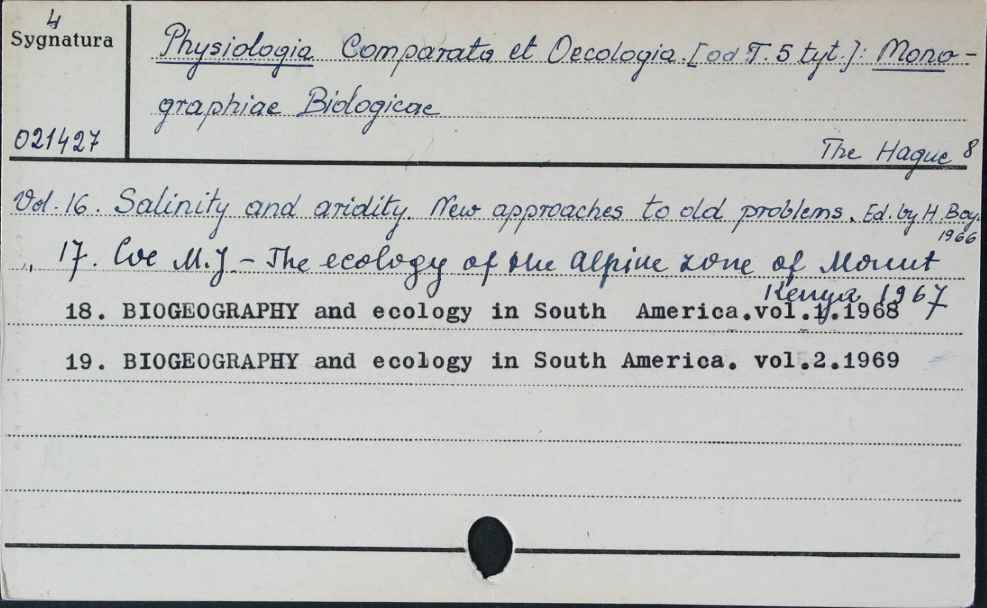 4
Sygnatura
Physiologia Comparata et Oecologia. [od T. 5 tyt.]: Mono-
graphiae Biologicae
021427
The Hague 8
Vol. 16. Salinity and aridity. New approaches to old problems. Ed. by H. Boy.
1966
„ 17. Coe M.J. - The ecology of the alpine zone of Mount
Kenya 1967
18. BIOGEOGRAPHY and ecology in South America.vol.1.1968
19. BIOGEOGRAPHY and ecology in South America. vol.2.1969